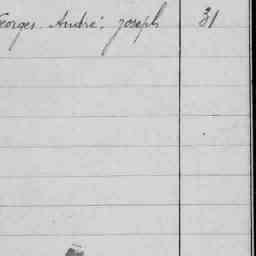 Georges. André. Joseph 31